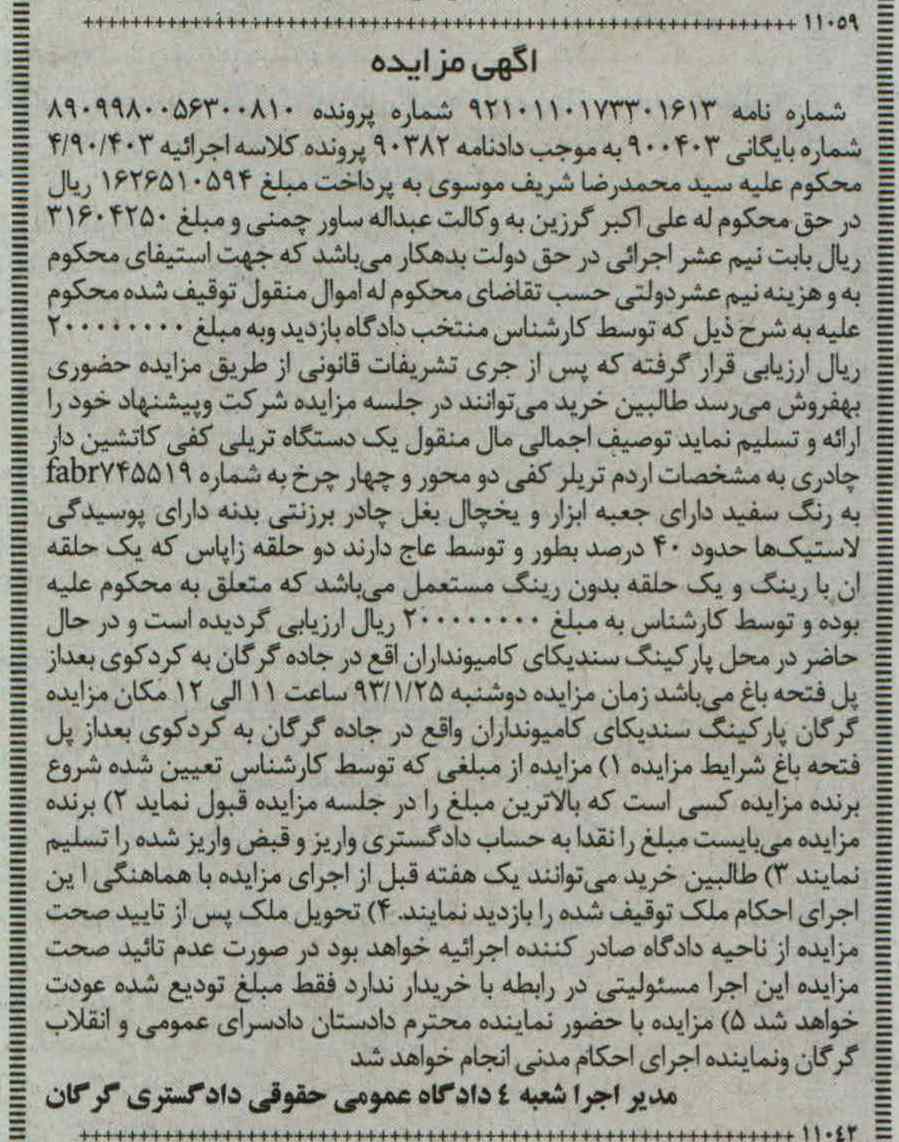 ۱۱۰۵۹
اگهی مزایده
شماره نامه ۹۲۱۰۱۱۰۱۷۳۳۰۱۶۱۳ شماره پرونده ۸۹۰۹۹۸۰۰۵۶۳۰۰۸۱۰
شماره بایگانی ۹۰۰۴۰۳ به موجب دادنامه ۹۰۳۸۲ پرونده کلاسه اجرائیه ۴/۹۰/۴۰۳
محکوم علیه سید محمدرضا شریف موسوی به پرداخت مبلغ ۱۶۲۶۵۱۰۵۹۴ ریال
در حق محکوم له علی اکبر گرزین به وکالت عبداله ساور چمنی و مبلغ ۳۱۶۰۴۲۵۰
ریال بابت نیم عشر اجرائی در حق دولت بدهکار می‌باشد که جهت استیفای محکوم
به و هزینه نیم عشر دولتی حسب تقاضای محکوم له اموال منقول توقیف شده محکوم
علیه به شرح ذیل که توسط کارشناس منتخب دادگاه بازدید وبه مبلغ ۲۰۰۰۰۰۰۰۰
ریال ارزیابی قرار گرفته که پس از جری تشریفات قانونی از طریق مزایده حضوری
بهفروش می‌رسد طالبین خرید می‌توانند در جلسه مزایده شرکت وپیشنهاد خود را
ارائه و تسلیم نماید توصیف اجمالی مال منقول یک دستگاه تریلی کفی کاتشین دار
چادری به مشخصات اردم تریلر کفی دو محور و چهار چرخ به شماره fabr۷۴۵۵۱۹
به رنگ سفید دارای جعبه ابزار و یخچال بغل چادر برزنتی بدنه دارای پوسیدگی
لاستیک‌ها حدود ۴۰ درصد بطور و توسط عاج دارند دو حلقه زاپاس که یک حلقه
ان با رینگ و یک حلقه بدون رینگ مستعمل می‌باشد که متعلق به محکوم علیه
بوده و توسط کارشناس به مبلغ ۲۰۰۰۰۰۰۰۰ ریال ارزیابی گردیده است و در حال
حاضر در محل پارکینگ سندیکای کامیونداران اقع در جاده گرگان به کردکوی بعداز
پل فتحه باغ می‌باشد زمان مزایده دوشنبه ۹۳/۱/۲۵ ساعت ۱۱ الی ۱۲ مکان مزایده
گرگان پارکینگ سندیکای کامیونداران واقع در جاده گرگان به کردکوی بعداز پل
فتحه باغ شرایط مزایده ۱) مزایده از مبلغی که توسط کارشناس تعیین شده شروع
برنده مزایده کسی است که بالاترین مبلغ را در جلسه مزایده قبول نماید ۲) برنده
مزایده می‌بایست مبلغ را نقدا به حساب دادگستری واریز و قبض واریز شده را تسلیم
نمایند ۳) طالبین خرید می‌توانند یک هفته قبل از اجرای مزایده با هماهنگی ا ین
اجرای احکام ملک توقیف شده را بازدید نمایند. ۴) تحویل ملک پس از تایید صحت
مزایده از ناحیه دادگاه صادر کننده اجرائیه خواهد بود در صورت عدم تائید صحت
مزایده این اجرا مسئولیتی در رابطه با خریدار ندارد فقط مبلغ تودیع شده عودت
خواهد شد ۵) مزایده با حضور نماینده محترم دادستان دادسرای عمومی و انقلاب
گرگان ونماینده اجرای احکام مدنی انجام خواهد شد
مدیر اجرا شعبه ٤ دادگاه عمومی حقوقی دادگستری گرگان
۱۱۰٤۲